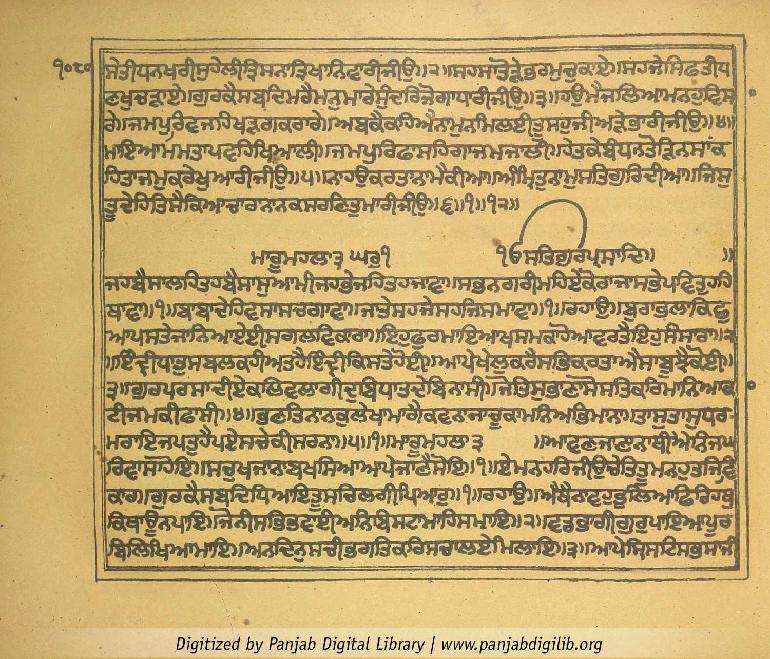 ੧੦੮੦
ਸੇਤੀਧਨਖਰੀਸੁਹੇਲੀਤਿਸਨਾਤਿਖਾਨਿਵਾਰੀਜੀਉ॥੨॥ਸਹਸਾਤੋੜੇਭਰਮੁਚੁਕਾਏ॥ਸਹਜੇਸਿਫਤੀਧ
ਣਖੁਚੜਾਏ॥ਗੁਰਕੈਸਬਦਿਮਰੈਮਨੁਮਾਰੇਸੁੰਦਰਿਜੋਗਾਧਾਰੀਜੀਉ॥੩॥ਹਉਮੈਜਲਿਆਮਨਹੁਵਿਸਾ
ਰੇ॥ਜਮਪੁਰਿਵਜਹਿਖੜਗਕਰਾਰੇ॥ਅਬਕੈਕਹਿਐਨਾਮੁਨਮਿਲਈਤੂਸਹੁਜੀਅੜੇਭਾਰੀਜੀਉ॥੪॥
ਮਾਇਆਮਮਤਾਪਵਹਿਖਿਆਲੀ॥ਜਮਪੁਰਿਫਾਸਹਿਗਾਜਮਜਾਲੀ॥ਹੇਤਕੇਬੰਧਨਤੋੜਿਨਸਾਕ
ਹਿਤਾਜਮੁਕਰੇਖੁਆਰੀਜੀਉ॥੫॥ਨਾਹਉਕਰਤਾਨਾਮੈਕੀਆ॥ਅੰਮ੍ਰਿਤੁਨਾਮੁਸਤਿਗੁਰਿਦੀਆ॥ਜਿਸੁ
ਤੂਦੇਹਿਤਿਸੈਕਿਆਚਾਰਾਨਾਨਕਸਰਣਿਤੁਮਾਰੀਜੀਉ॥੬॥੧॥੧੨॥
ਮਾਰੂਮਹਲਾ੩ ਘਰੁ੧ ੴਸਤਿਗੁਰਪ੍ਰਸਾਦਿ॥ ॥
ਜਹਬੈਸਾਲਹਿਤਹਬੈਸਾਸੁਆਮੀਜਹਭੇਜਹਿਤਹਜਾਵਾ॥ਸਭਨਗਰੀਮਹਿਏਕੋਰਾਜਾਸਭੇਪਵਿਤੁਹਹਿ
ਥਾਵਾ॥੧॥ਬਾਬਾਦੇਹਿਵਸਾਸਚਗਾਵਾ॥ਜਾਤੇਸਹਜੇਸਹਜਿਸਮਾਵਾ॥੧॥ਰਹਾਉ॥ਬੁਰਾਭਲਾਕਿਛੁ
ਆਪਸਤੇਜਾਨਿਆਏਈਸਗਲਵਿਕਾਰਾ॥ਇਹੁਫੁਰਮਾਇਆਖਸਮਕਾਹੋਆਵਰਤੈਇਹੁਸੰਸਾਰਾ॥੨
॥ਇੰਦ੍ਰੀਧਾਤੁਸਬਲਕਹੀਅਤਹੈਇੰਦ੍ਰੀਕਿਸਤੇਹੋਈ॥ਆਪੇਖੇਲਕਰੈਸਭਿਕਰਤਾਐਸਾਬੂਝੈਕੋਈ॥
੩॥ਗੁਰਪਰਸਾਦੀਏਕਲਿਵਲਾਗੀਦੁਬਿਧਾਤਦੇਬਿਨਾਸੀ॥ਜੋਤਿਸੁਭਾਣਾਸੋਸਤਿਕਰਿਮਾਨਿਆਕਾ
ਟੀਜਮਕੀਫਾਸੀ॥੪॥ਭਣਤਿਨਾਨਕੁਲੇਖਾਮਾਗੈਕਵਨਾਜਾਚੂਕਾਮਨਿਅਭਿਮਾਨਾ॥ਤਾਸੁਤਾਸੁਧਰ
ਮਰਾਇਜਪਤੁਹੈਪਏਸਚੇਕੀਸਰਨਾ॥੫॥੧॥ਮਾਰੂਮਹਲਾ੩ ॥ਆਵਣਜਾਣਾਨਾਥੀਐਨਿਜਘ
ਰਿਵਾਸਾਹੋਇ॥ਸਚੁਖਜਾਨਾਬਖਸਿਆਆਪੇਜਾਣੈਸੋਇ॥੧॥ਏਮਨਹਰਿਜੀਉਚੇਤਿਤੂਮਨਹੁਤਜਿਵਿ
ਕਾਰ॥ਗੁਰਕੈਸਬਦਿਧਿਆਇਤੂਸਚਿਲਗੀਪਿਆਰੁ॥੧॥ਰਹਾਉ॥ਐਥੈਨਾਵਹੁਭੁਲਿਆਫਿਰਿਹਥੁ
ਕਿਥਾਊਨਪਾਇ॥ਜੋਨੀਸਭਿਭਵਾਈਅਨਿਬਿਸਟਾਮਾਹਿਸਮਾਇ॥੨॥ਵਡਭਾਗੀਗੁਰੁਪਾਇਆਪੂਰ
ਬਿਲਿਖਿਆਮਾਇ॥ਅਨਦਿਨੁਸਚੀਭਗਤਿਕਰਿਸਚਾਲਏਮਿਲਾਇ॥੩॥ਆਪੇਸ੍ਰਿਸਟਿਸਭਸਾਜੀ
Digitized by Panjab Digital Library | www.panjabdigilib.org